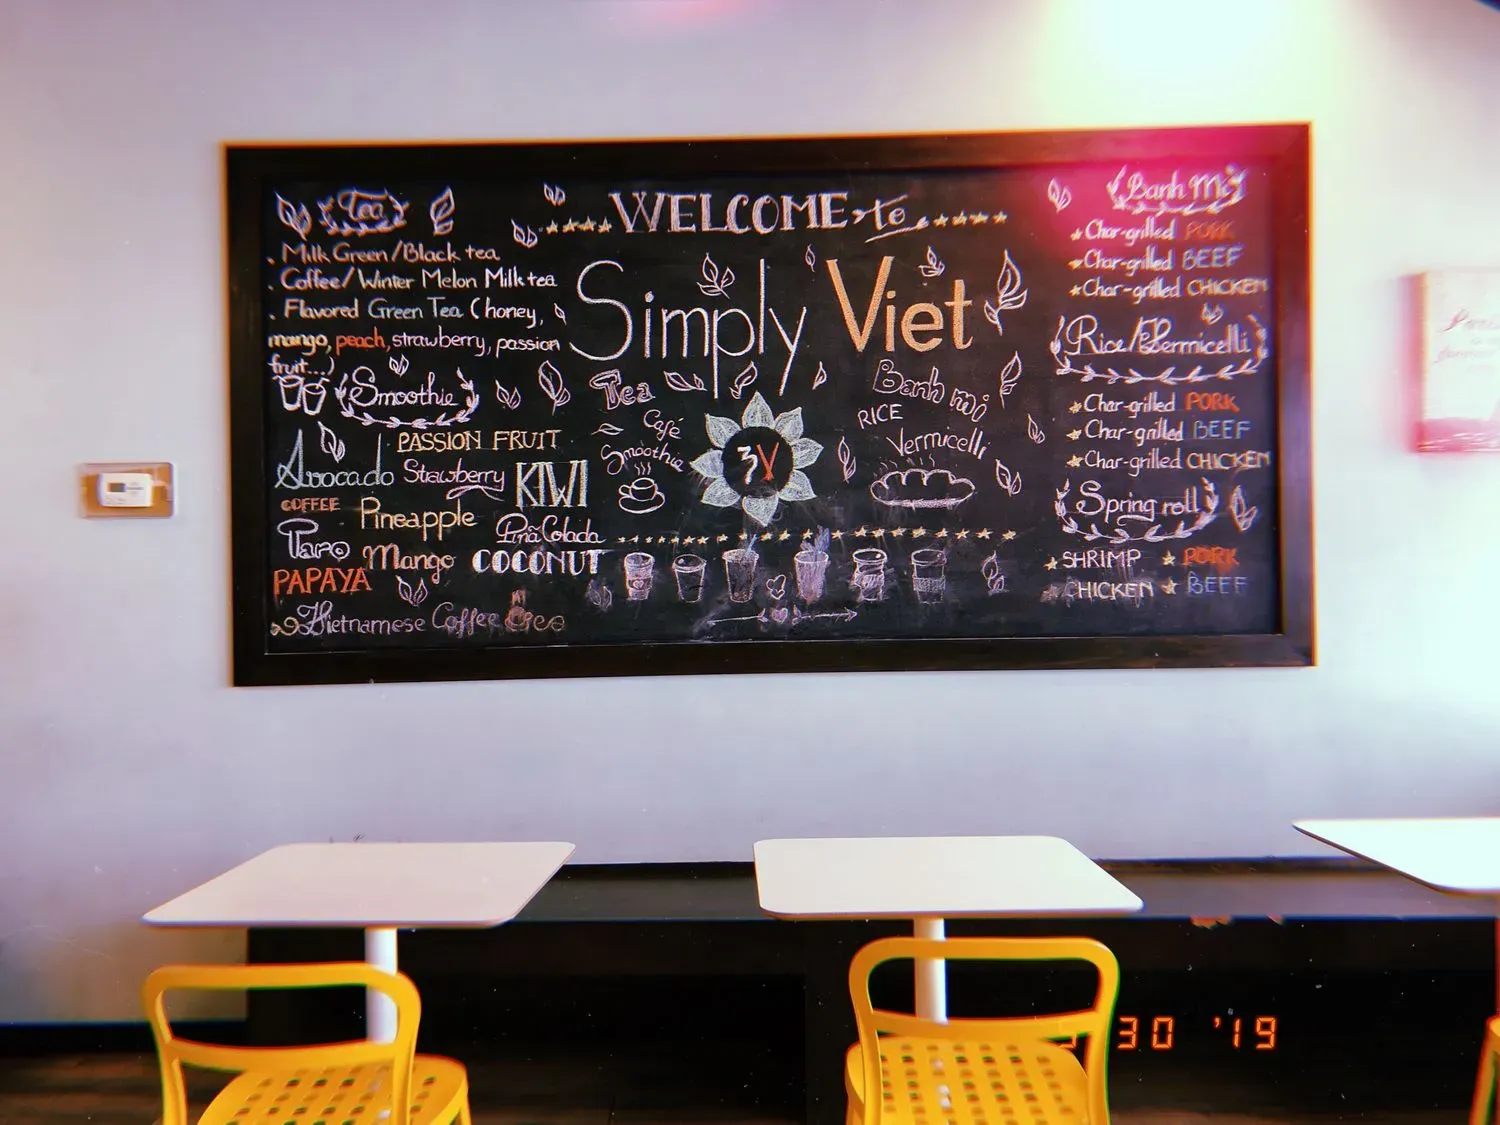 Tea
Milk Green/Black tea
Coffee/Winter Melon Milk tea
Flavored Green Tea (honey,
mango, peach, strawberry, passion
fruit...)
Smoothie
PASSION FRUIT
Avocado Strawberry KIWI
COFFEE Pineapple
Piña Colada
Taro Mango COCONUT
PAPAYA
Vietnamese Coffee
WELCOME to
Simply Viet
Tea
Café
Smoothie
3V
Banh mi
RICE
Vermicelli
Banh Mi
Char-grilled PORK
Char-grilled BEEF
Char-grilled CHICKEN
Rice/Vermicelli
Char-grilled PORK
Char-grilled BEEF
Char-grilled CHICKEN
Spring roll
SHRIMP PORK
CHICKEN BEEF
30 '19